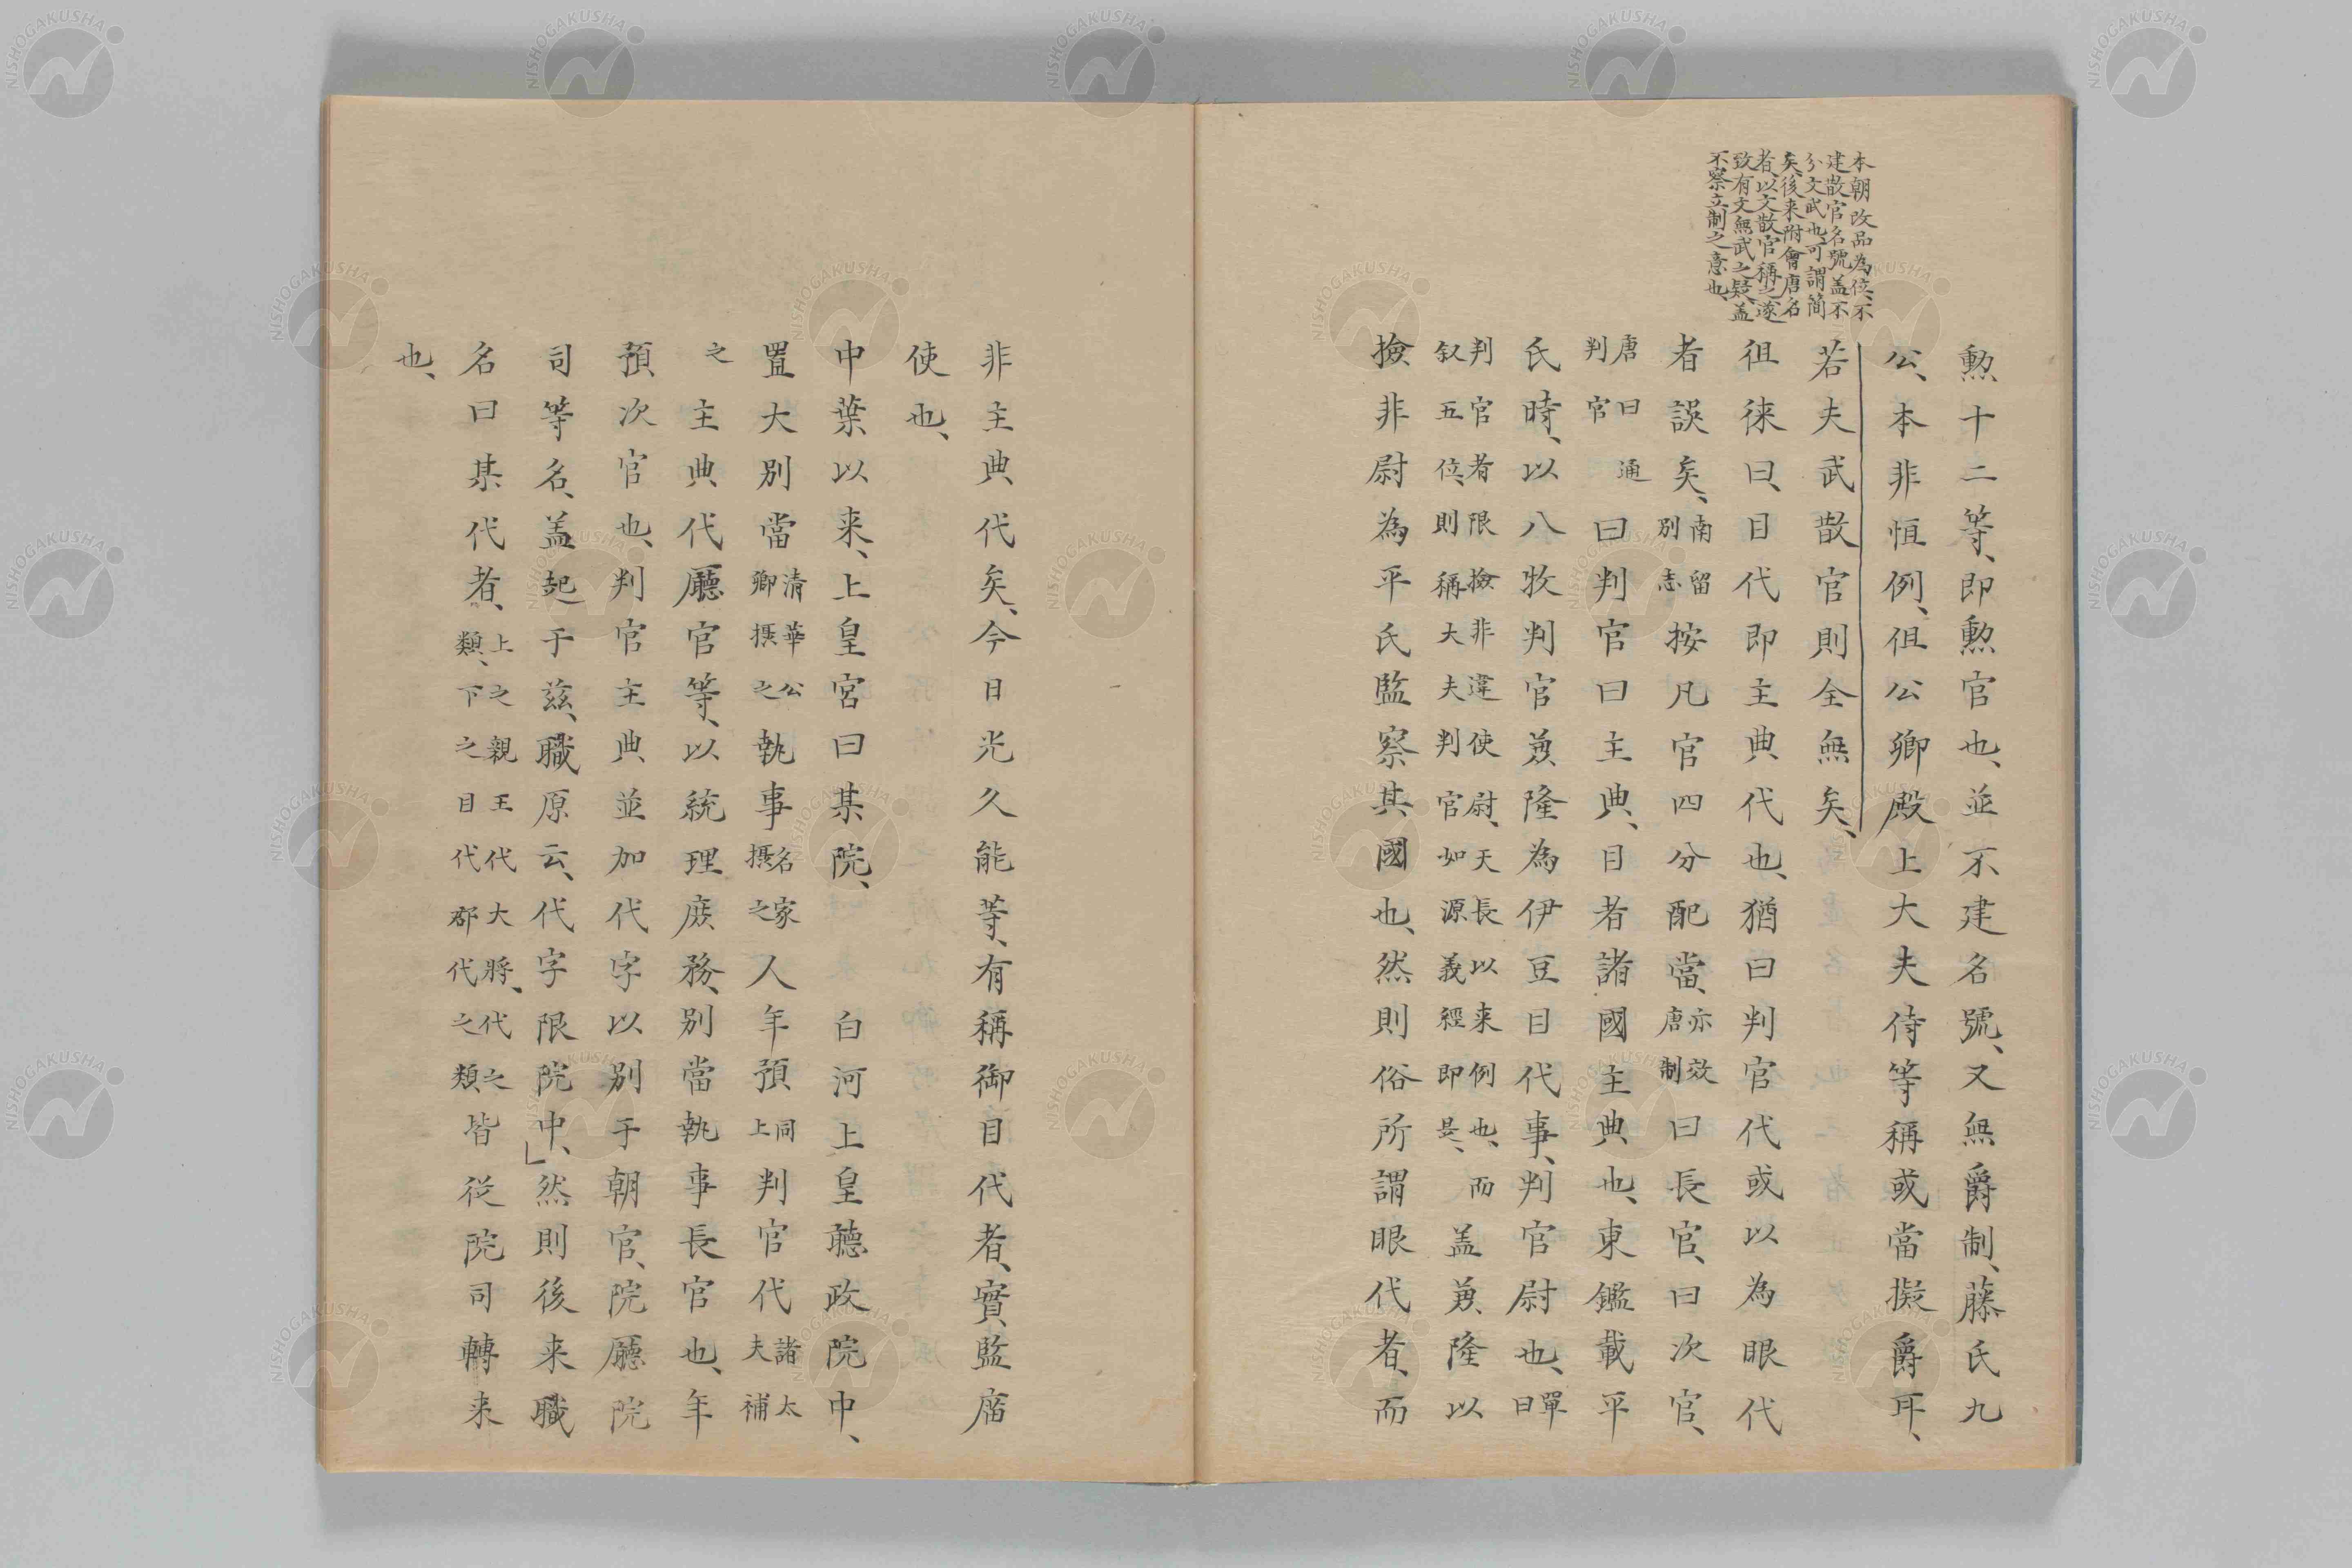 本朝改品為位、不
建散官名號盖不
分文武也、可謂簡
矣、後来附會唐名
者、以文散官稱之遂
致有文無武之疑、盖
不察立制之意也、
勲十二等、即勲官也、並不建名號、又無爵制、藤氏九
公、本非恒例、但公卿殿上大夫侍等稱或當擬爵耳、
若夫武散官則全無矣、
徂徠曰、目代即主典代也、猶曰判官代或以為眼代
者誤矣、南留別志按凡官四分配當、亦效唐制曰長官、曰次官、
唐曰通判官曰判官曰主典、目者諸國主典也、東鑑載平
氏時、以八牧判官兼隆為伊豆目代事、判官尉也、單曰
判官者限撿非違使尉、天長以来例也、而叙五位、則稱大夫判官如源義經即是、盖兼隆以
撿非尉為平氏監察其國也、然則俗所謂眼代者、而
非主典代矣、今日光久能等、有稱御目代者、實監庿
使也、
中葉以来、上皇宮曰某院、白河上皇聽政院中、
置大別當清華公卿摂之執事名家摂之人年預同上判官代諸太夫補
之主典代廳官等、以統理庶務、別當執事長官也、年
預次官也、判官主典並加代字以別于朝官、院廳院
司等名、盖起于茲、職原云、代字限院中、」然則後来職
名曰某代者、上之親王代大將代之類、下之目代郡代之類皆從院司轉来
也、